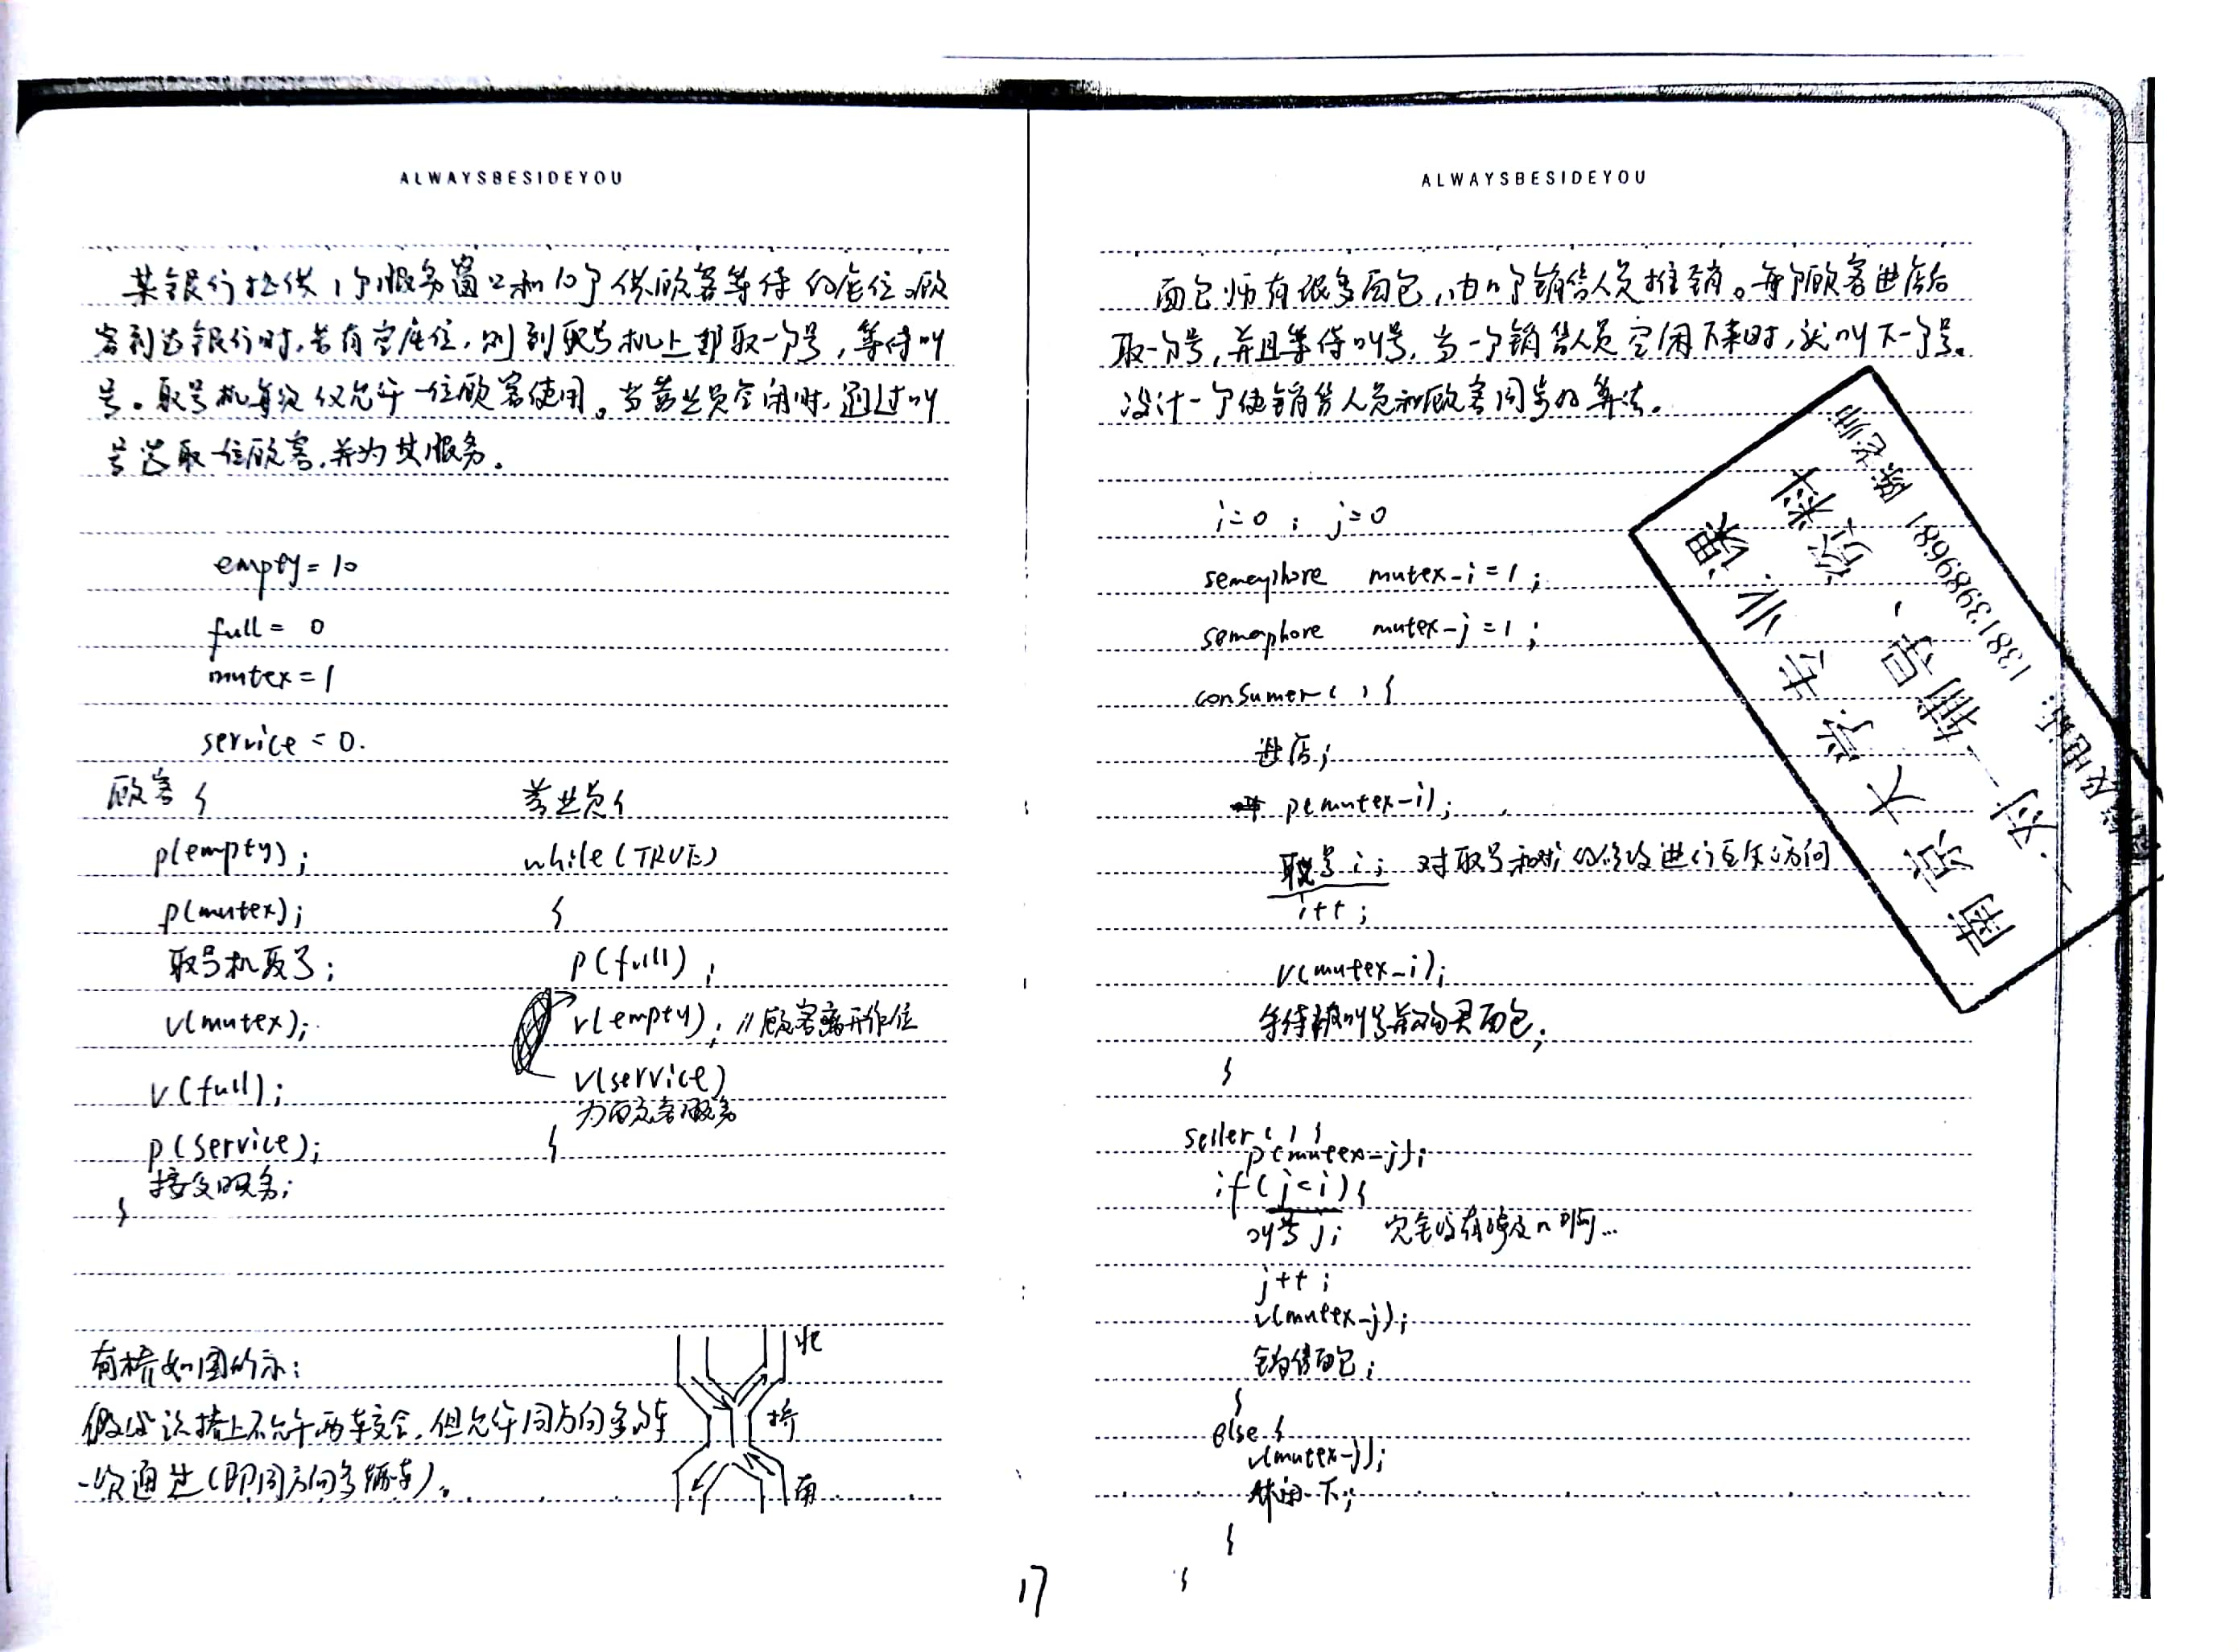 ALWAYSBESIDEYOU
某银行提供1个服务窗口和10个供顾客等待的座位。顾
客到达银行时,若有空座位,则到取号机上取一个号,等待叫
号。取号机每次仅允许一位顾客使用。当营业员空闲时,通过叫
号选取一位顾客,并为其服务。
empty = 10
full = 0
mutex = 1
service = 0.
顾客 {
p(empty);
p(mutex);
取号机取号;
v(mutex);
v(full);
p(service);
接受服务;
}
营业员 {
while(TRUE)
{
p(full);
v(empty); //顾客离开座位
v(service)
为顾客服务
}
有桥如图所示:
假设该桥上不允许两车交会,但允许同方向多个车
一次通过(即同方向多辆车)。
北
桥
南
ALWAYSBESIDEYOU
面包师有很多面包,由n个销售人员推销。每个顾客进店后
取一个号,并且等待叫号,当一个销售人员空闲下来时,就叫下一个号。
设计一个使销售人员和顾客同步的算法。
i=0; j=0
semaphore mutex-i=1;
semaphore mutex-j=1;
consumer() {
进店;
p(mutex-i);
取号i; 对取号和对i的修改进行互斥访问
i++;
v(mutex-i);
等待被叫号并购买面包;
}
seller() {
p(mutex-j);
if(j<i) {
叫号j; 完全没有涉及n啊…
j++;
v(mutex-j);
销售面包;
}
else {
v(mutex-j);
休闲一下;
}
}
南京大学专业课
一对一辅导、资料
13813989681 陈老师
17